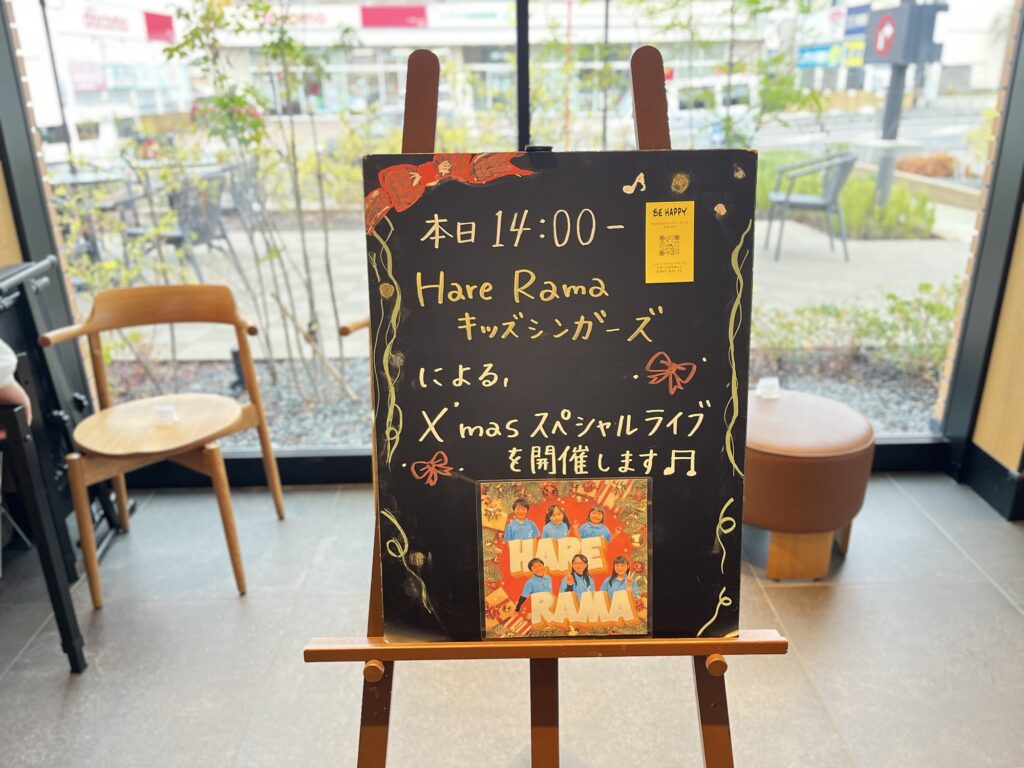 docomo
docomo
本日 14:00-
BE HAPPY
Hare Rama
キッズシンガーズ
による,
X'mas スペシャルライブ
を開催します♫
HARE
RAMA